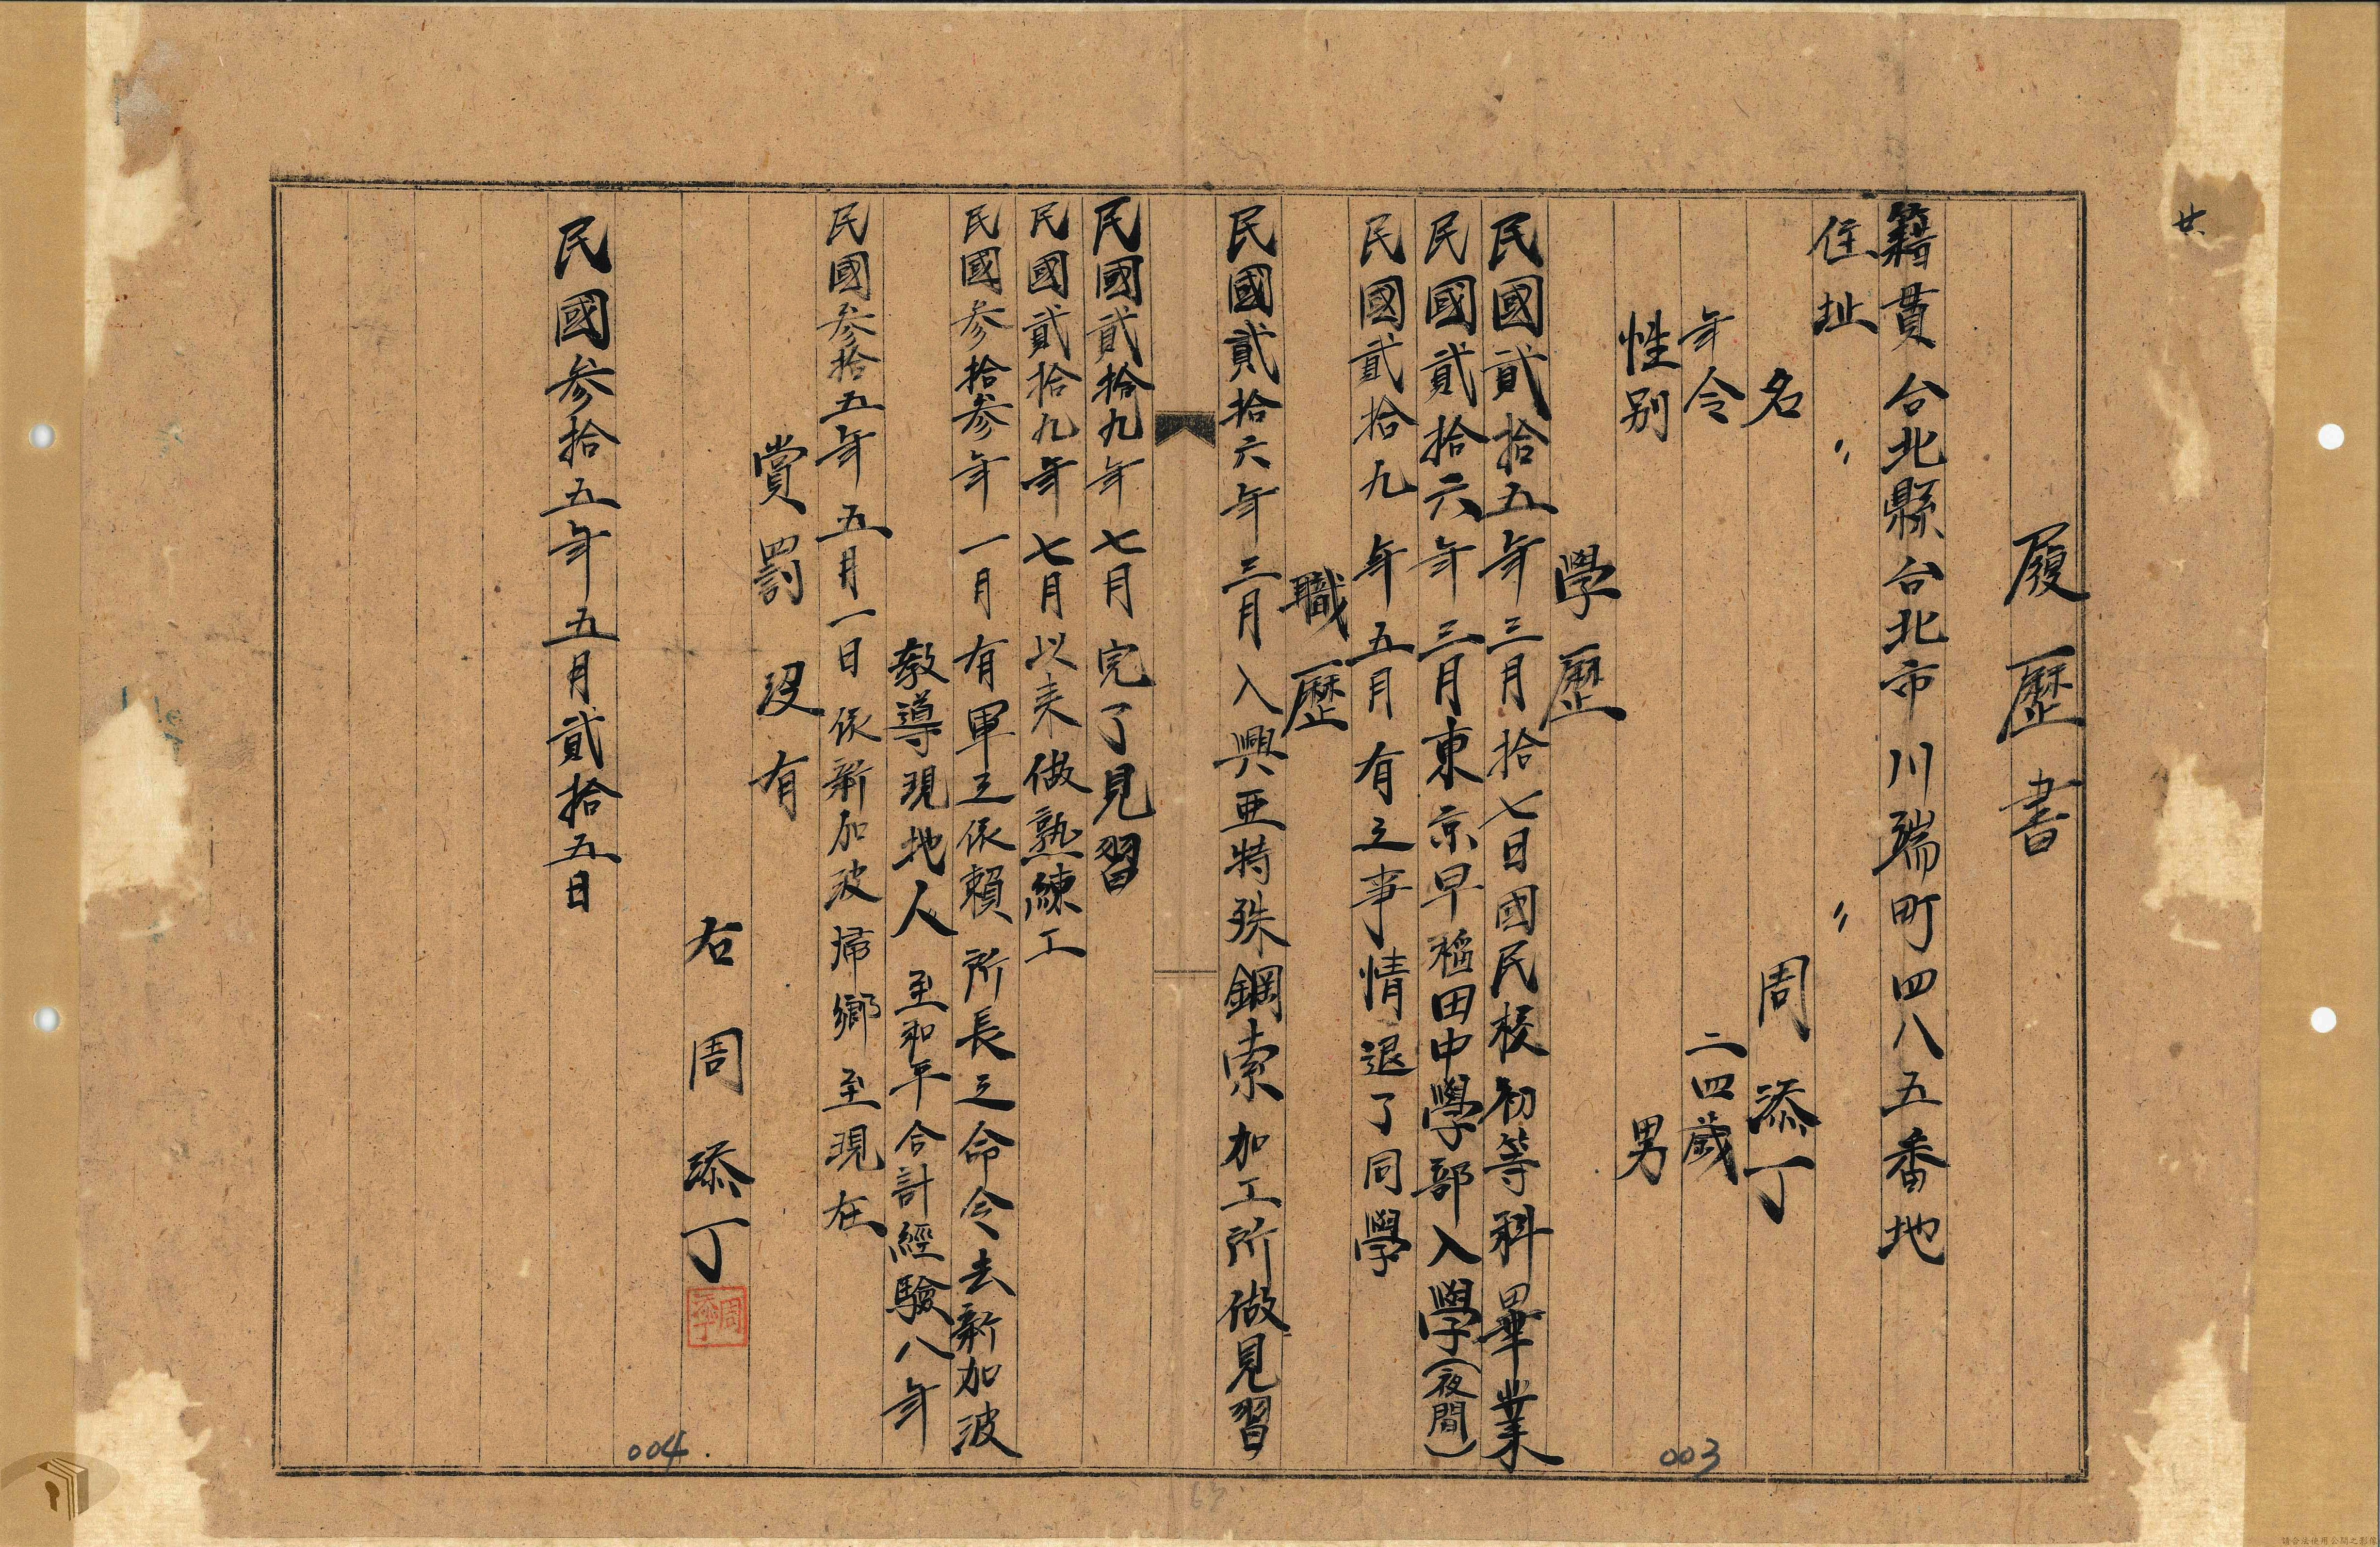 廿
履歷書
籍貫 台北縣台北市川端町四八五番地
住址 〃 〃
名 周添丁
年令 二四歲
性別 男
學歷
民國貳拾五年三月拾七日國民校初等科畢業
民國貳拾六年三月東京早稲田中學部入學(夜間)
民國貳拾九年五月有之事情退了同學
職歷
民國貳拾六年三月入興亜特殊鋼索加工所做見習
民國貳拾九年七月完了見習
民國貳拾九年七月以来做熟練工
民國参拾参年一月有軍之依賴所長之命令去新加波
教導現地人 至和平合計經驗八年
民國参拾五年五月一日依新加波帰鄉至現在
賞罰 沒有
右 周添丁
周添丁
民國参拾五年五月貳拾五日
003
004.
63